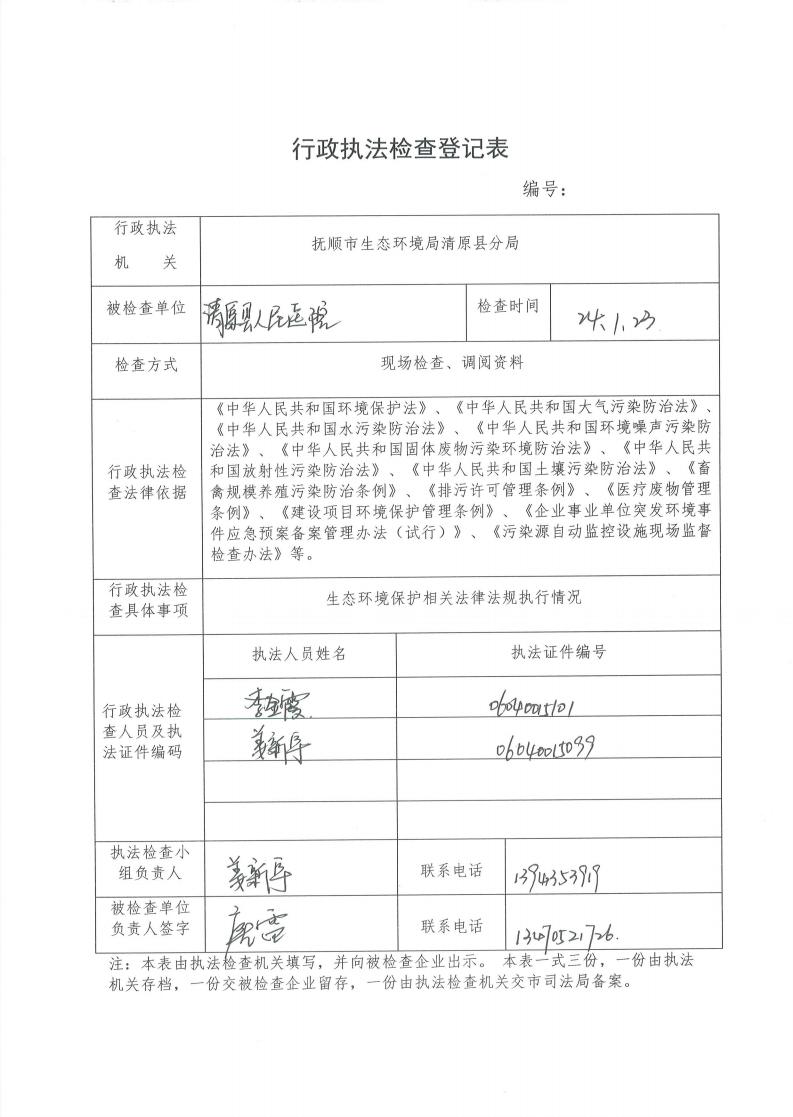 行政执法检查登记表
编号：
行政执法
机 关
抚顺市生态环境局清原县分局
被检查单位
清原县人民医院
检查时间
24.1.23
检查方式
现场检查、调阅资料
行政执法检
查法律依据
《中华人民共和国环境保护法》、《中华人民共和国大气污染防治法》、
《中华人民共和国水污染防治法》、《中华人民共和国环境噪声污染防
治法》、《中华人民共和国固体废物污染环境防治法》、《中华人民共
和国放射性污染防治法》、《中华人民共和国土壤污染防治法》、《畜
禽规模养殖污染防治条例》、《排污许可管理条例》、《医疗废物管理
条例》、《建设项目环境保护管理条例》、《企业事业单位突发环境事
件应急预案备案管理办法（试行）》、《污染源自动监控设施现场监督
检查办法》等。
行政执法检
查具体事项
生态环境保护相关法律法规执行情况
行政执法检
查人员及执
法证件编码
执法人员姓名
执法证件编号
06040015101
06040015099
执法检查小
组负责人
联系电话
被检查单位
负责人签字
联系电话
13470521726.
注：本表由执法检查机关填写，并向被检查企业出示。 本表一式三份，一份由执法
机关存档，一份交被检查企业留存，一份由执法检查机关交市司法局备案。